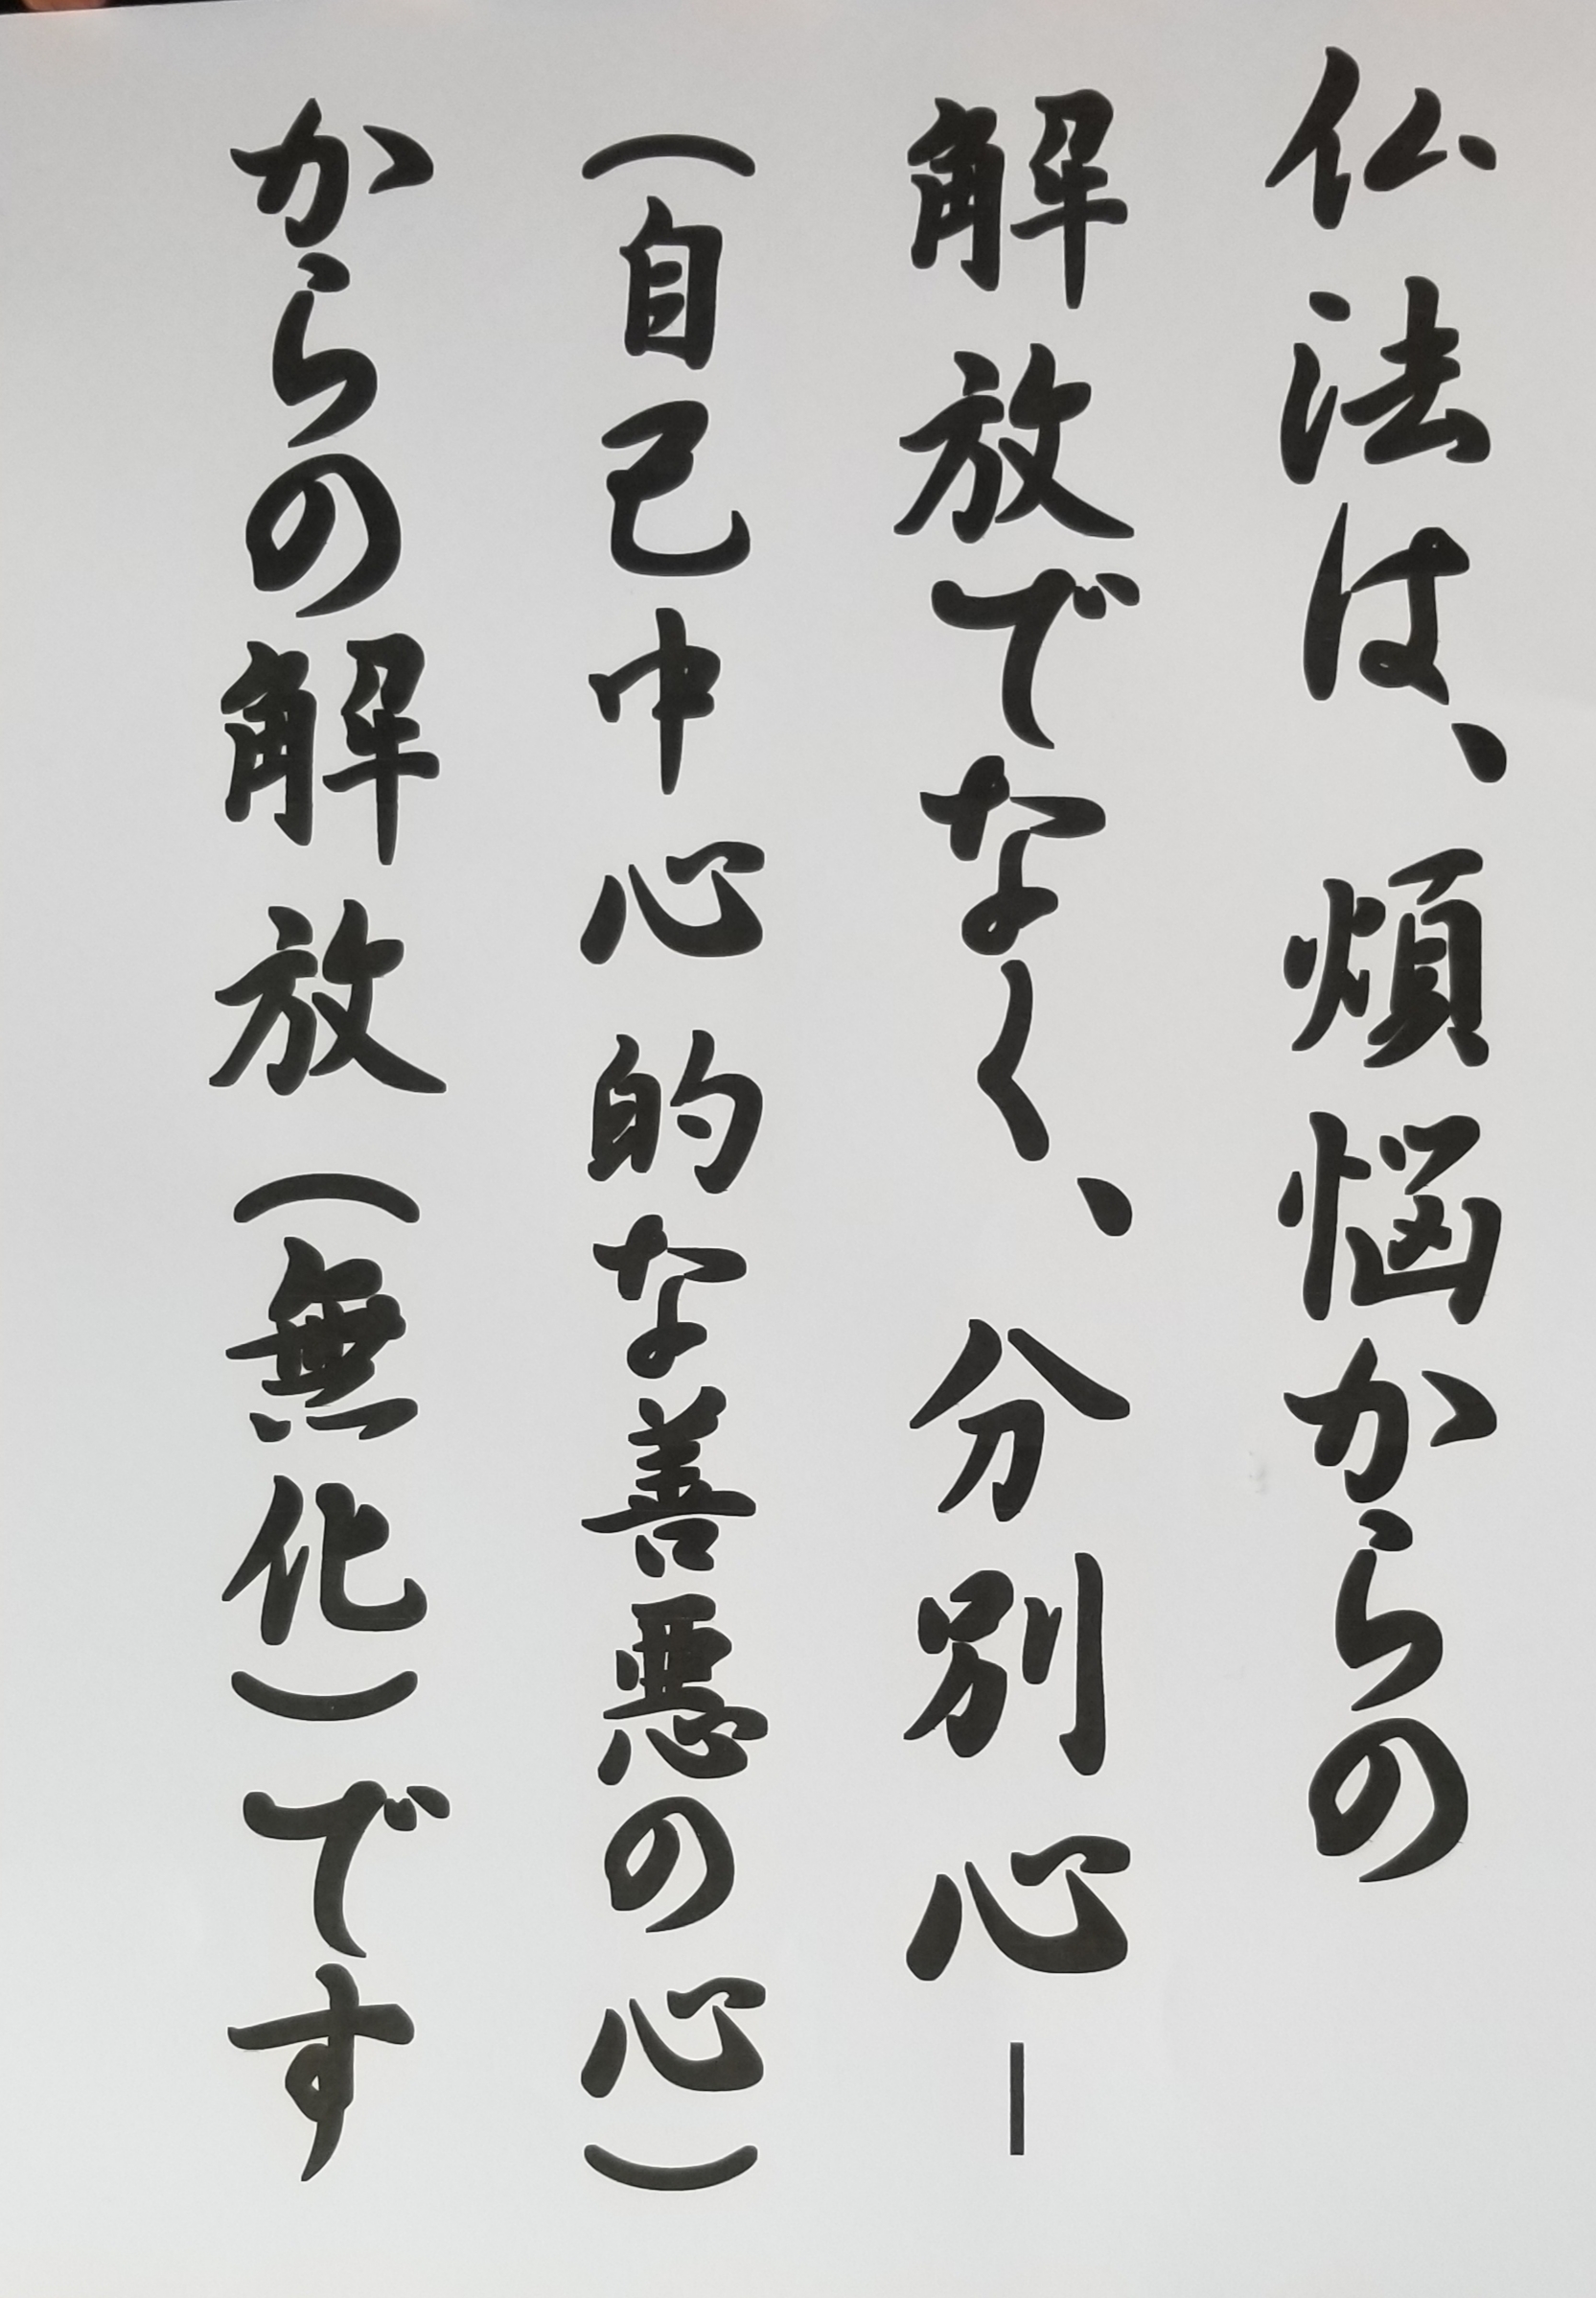 仏法は、煩悩からの
解放でなく、分別心―
（自己中心的な善悪の心）
からの解放（無化）です